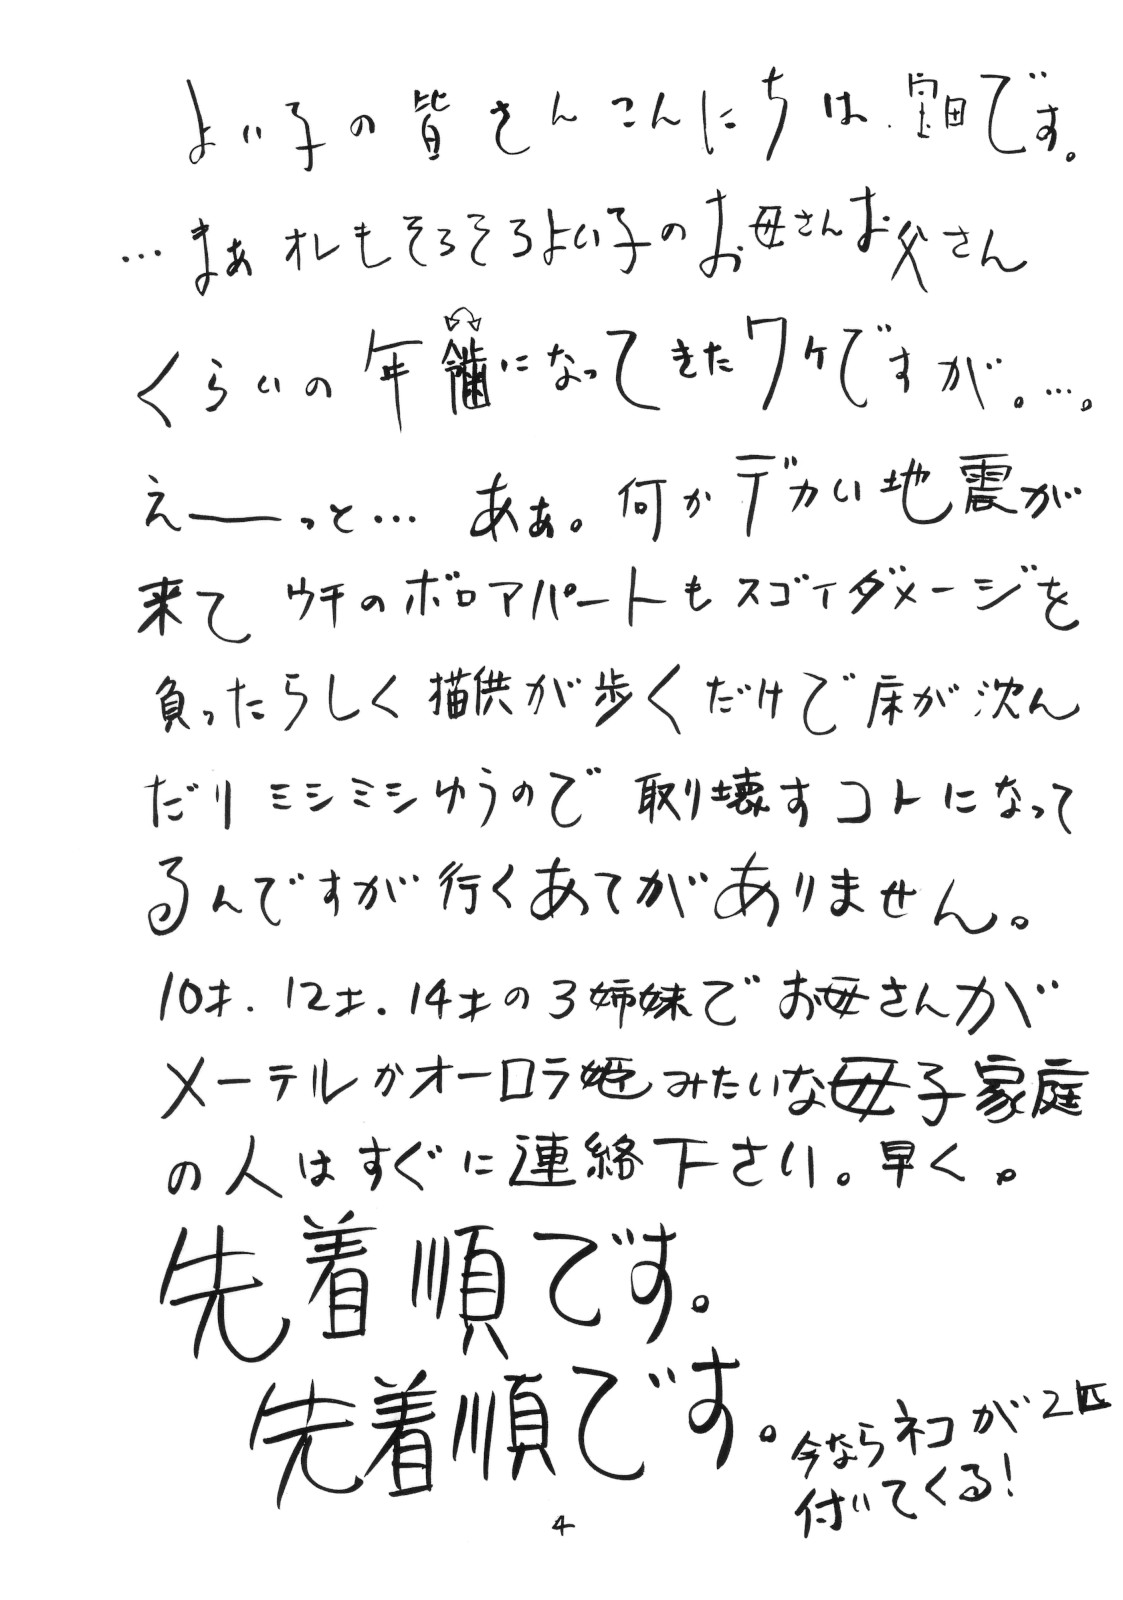 よい子の皆さんこんにちは.室田です。
…まぁオレもそろそろよい子のお母さんお父さん
くらいの年齢になってきたワケですが。…。
えーーっと… あぁ。何かデカい地震が
来て ウチのボロアパートもスゴイダメージを
負ったらしく猫供が歩くだけで床が沈ん
だりミシミシゆうので 取り壊すコトになって
るんですが行くあてがありません。
10才.12才.14才の3姉妹でお母さんが
メーテルかオーロラ姫みたいな母子家庭
の人はすぐに連絡下さい。早く。
先着順です。
先着順です。
今ならネコが2匹
付いてくる!
4